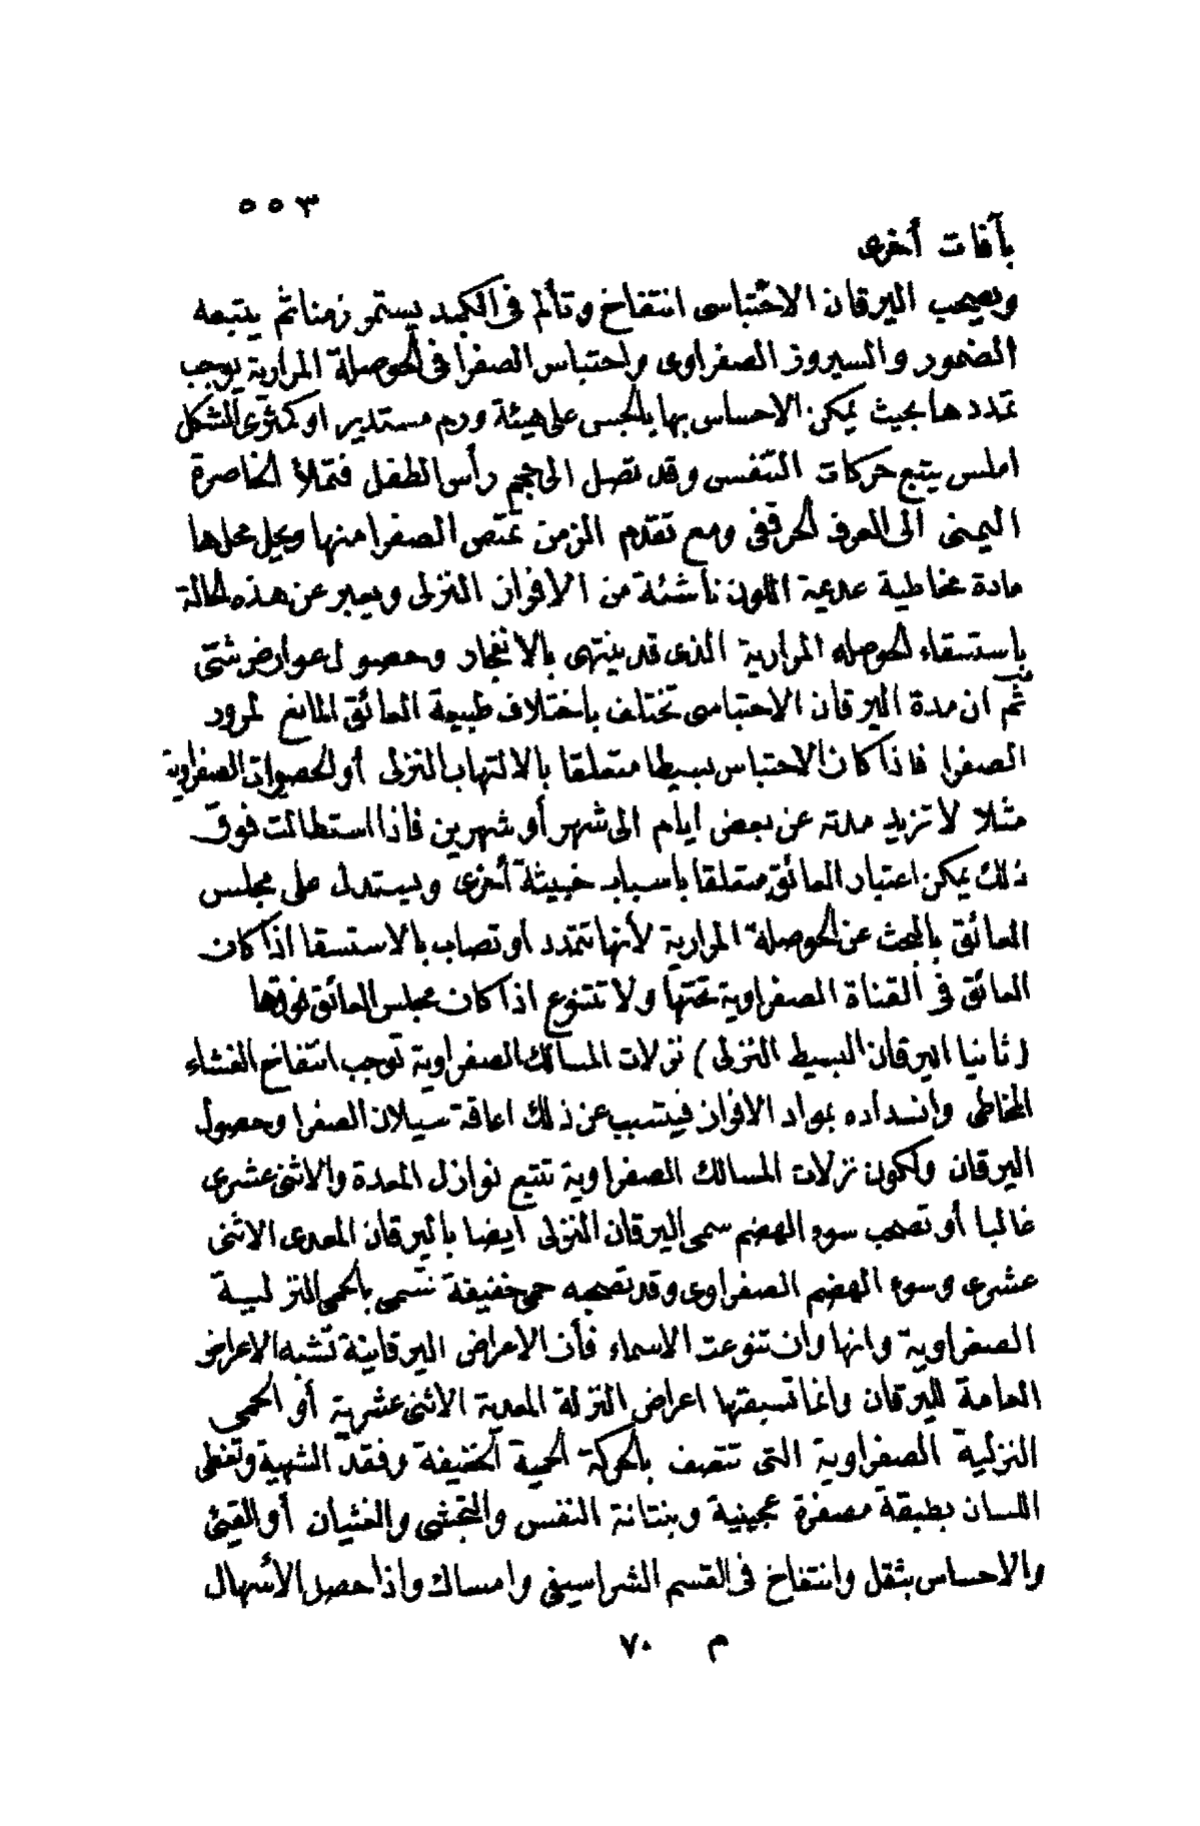 ٥٥٣
بآفات أخرى
ويصحب اليرقان الاحتباسى انتفاخ وتألم فى الكبد يستمر زمنا ثم يتبعه
الضمور والسيروز الصفراوى واحتباس الصفرا فى الحوصلة المرارية يوجب
تمددها بحيث يمكن الاحساس بها بالجس على هيئة ورم مستدير او كمثرى الشكل
املس يتبع حركات التنفس وقد تصل الى حجم رأس الطفل فتملأ الخاصرة
اليمنى الى العرف الحرقفى ومع تقدم الزمن تمتص الصفرا منها ويحل محلها
مادة مخاطية عديمة اللون ناشئة من الافراز النزلى ويعبر عن هذه الحالة
باستسقاء الحوصله المرارية الذى قد ينتهى بالانفجار وحصول عوارض شتى
ثم ان مدة اليرقان الاحتباسى تختلف باختلاف طبيعة العائق المانع لمرور
الصفرا فاذا كان الاحتباس بسيطا متعلقا بالالتهاب النزلى أو الحصوات الصفراوية
مثلا لا تزيد مدته عن بعض ايام الى شهر أو شهرين فاذا استطالت فوق
ذلك يمكن اعتبار العائق متعلقا باسباب خبيثة أخرى ويستدل على مجلس
العائق بالبحث عن الحوصلة المرارية لأنها تتمدد أو تصاب بالاستسقا اذا كان
العائق فى القناة الصفراوية تحتها ولا تتنوع اذا كان مجلس العائق فوقها
(ثانيا اليرقان البسيط النزلى) نزلات المسالك الصفراوية توجب انتفاخ الغشاء
المخاطى وانسداده بمواد الافراز فيتسبب عن ذلك اعاقة سيلان الصفرا وحصول
اليرقان ولكون نزلات المسالك الصفراوية تتبع نوازل المعدة والاثنى عشرى
غالبا أو تصحب سوء الهضم سمى اليرقان النزلى ايضا باليرقان المعدى الاثنى
عشرى وسوء الهضم الصفراوى وقد تصحبه حمى خفيفة تسمى بالحمى النزلية
الصفراوية وانها وان تنوعت الاسماء فأن الاعراض اليرقانية تشبه الاعراض
العامة لليرقان وانما تسبقها اعراض النزلة المعدية الاثنى عشرية أو الحمى
النزلية الصفراوية التى تتصف بالحركة الحمية الخفيفة وفقد الشهية وتغطى
اللسان بطبقة مصفرة عجينية وبنتانة النفس والتجشى والغثيان أو القيئ
والاحساس بثقل وانتفاخ فى القسم الشراسيفى وامساك واذا حصل الأسهال
م ٧٠